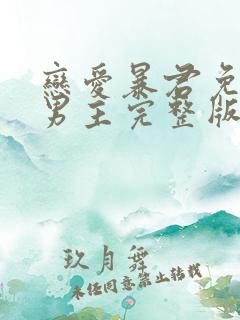 戀愛暴君免
男主完整版
玖月舞
未经同意禁止转载